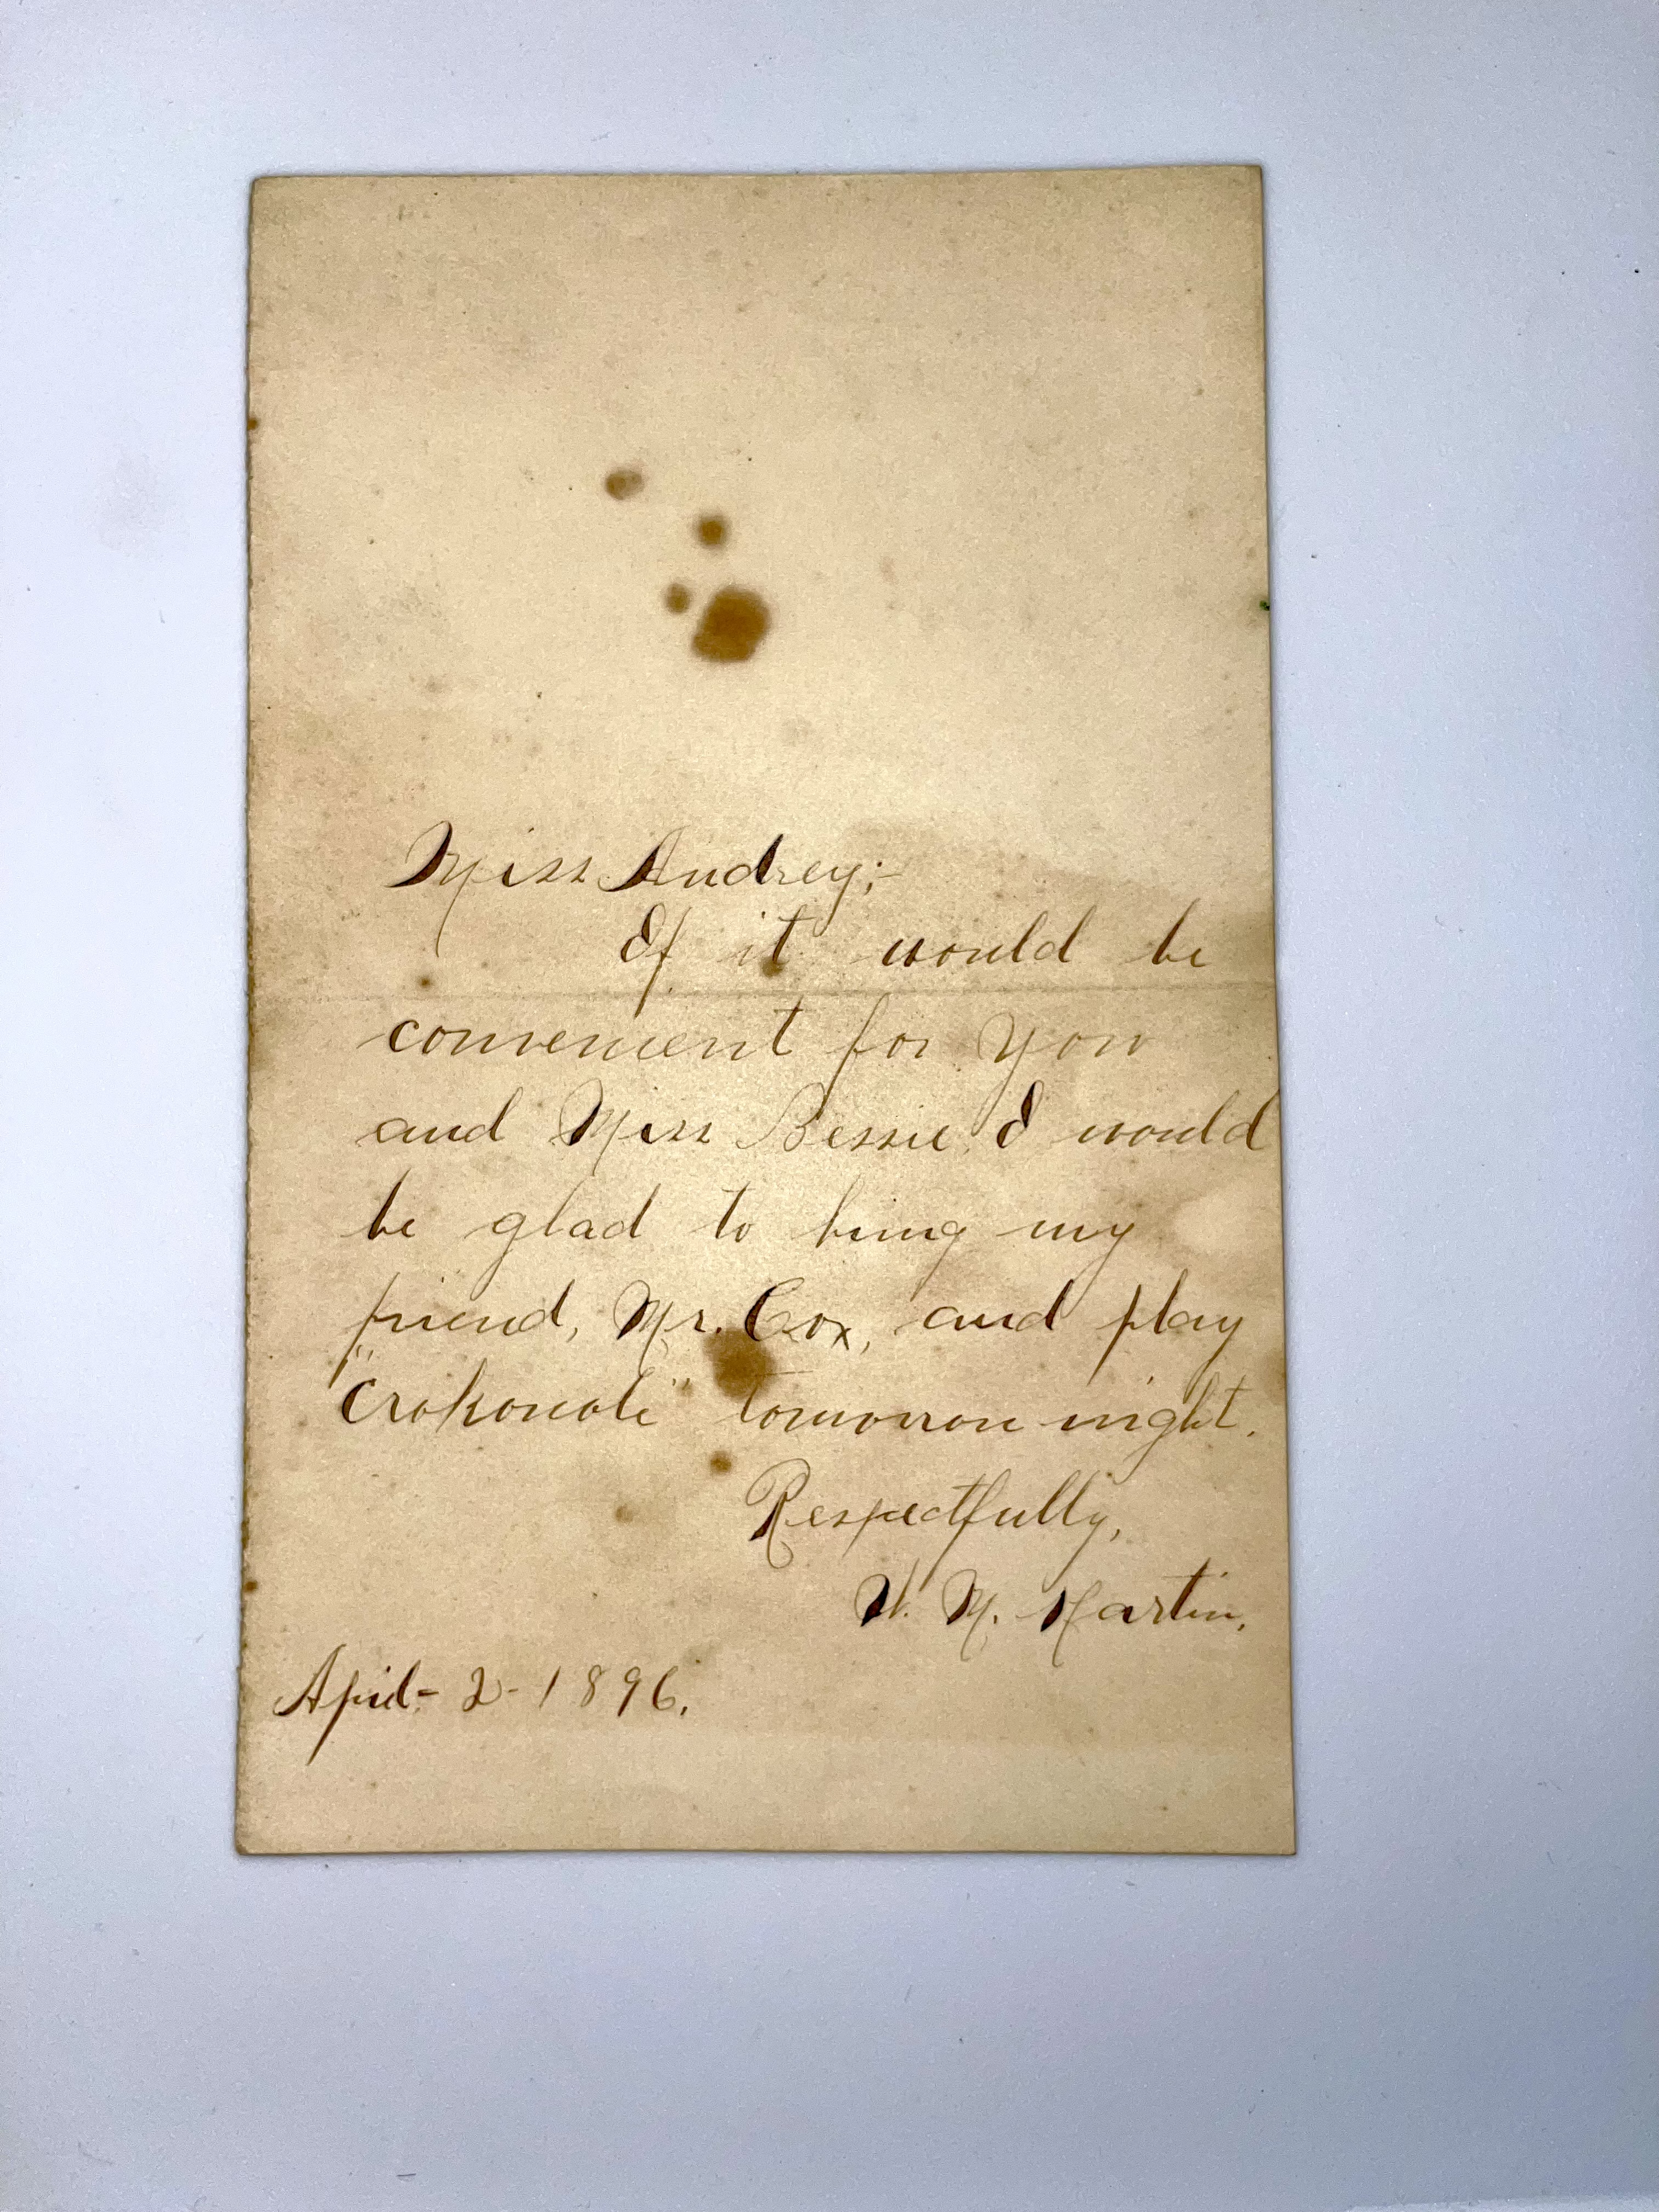 Miss Audrey;-
If it would be
convenient for you
and Miss Bessie I would
be glad to bring my
friend, Mr. Cox, and play
"Crokonole" tomorrow night.
Respectfully,
W. M. Martin.
April- 2- 1896.